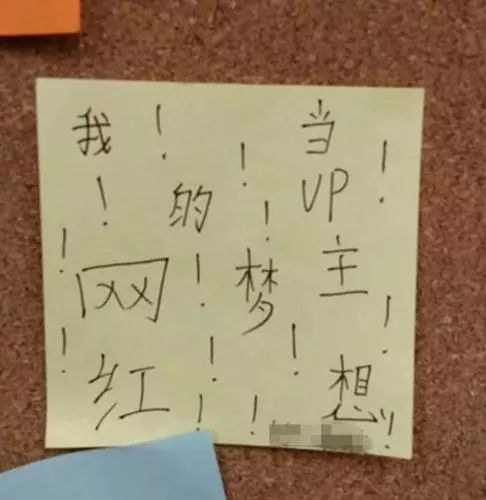 我的梦想
当UP主
网红
!!!!!!!!!!!!!!